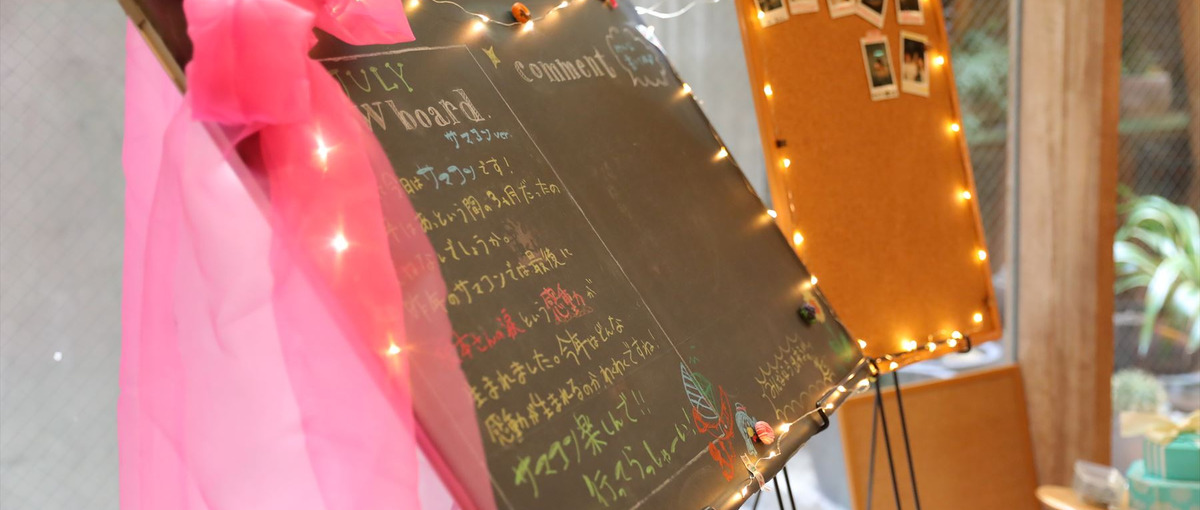 JULY
W board.
サマコン ver.
今日はサマコンです!
あっという間の3ヵ月だったの
でしょうか。
昨年のサマコンでは最後に
さんの涙という感動が
生まれました。今年はどんな
感動が生まれるのかわかですね!
サマコン楽しんで!!
行ってらっしゃーい!
comment